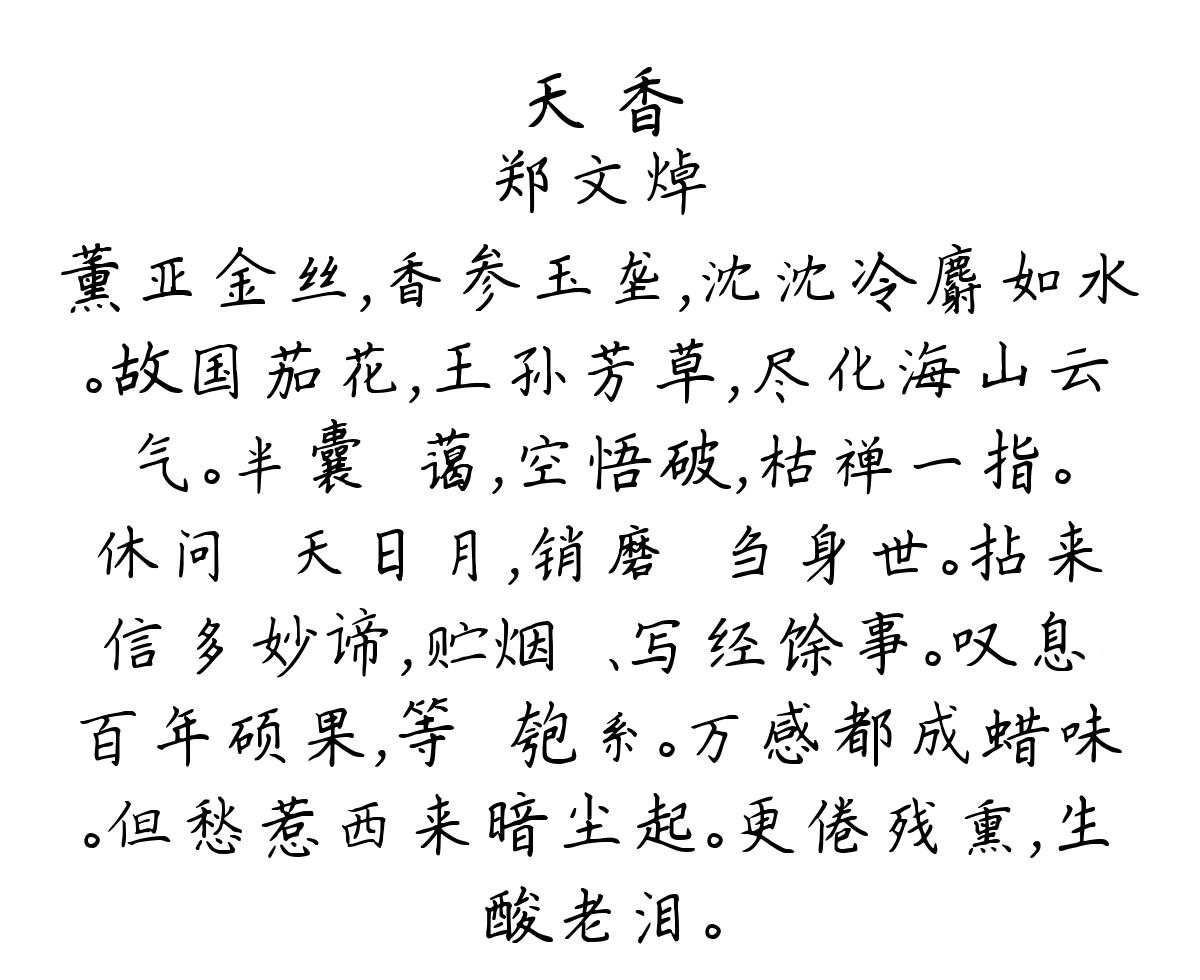 天香
郑文焯
薰亚金丝,香参玉垄,沈沈冷麝如水
。故国茄花,王孙芳草,尽化海山云
气。半囊 蔼,空悟破,枯禅一指。
休问 天日月,销磨 刍身世。拈来
信多妙谛,贮烟 、写经馀事。叹息
百年硕果,等 匏系。万感都成蜡味
。但愁惹西来暗尘起。更倦残熏,生
酸老泪。